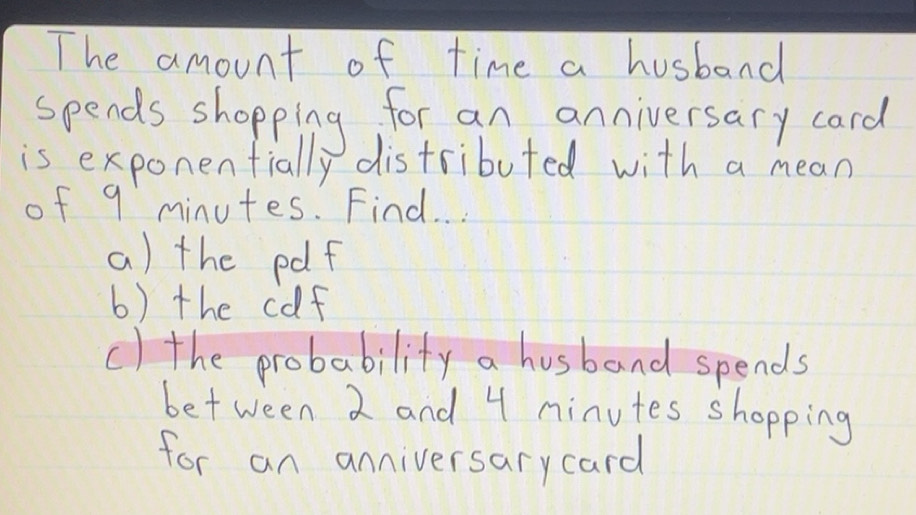 The amount of time a husband
spends shopping for an anniversary card
is exponentially distributed with a mean
of 9 minutes. Find...
a) the pdf
b) the cdf
c) the probability a husband spends
between 2 and 4 minutes shopping
for an anniversary card